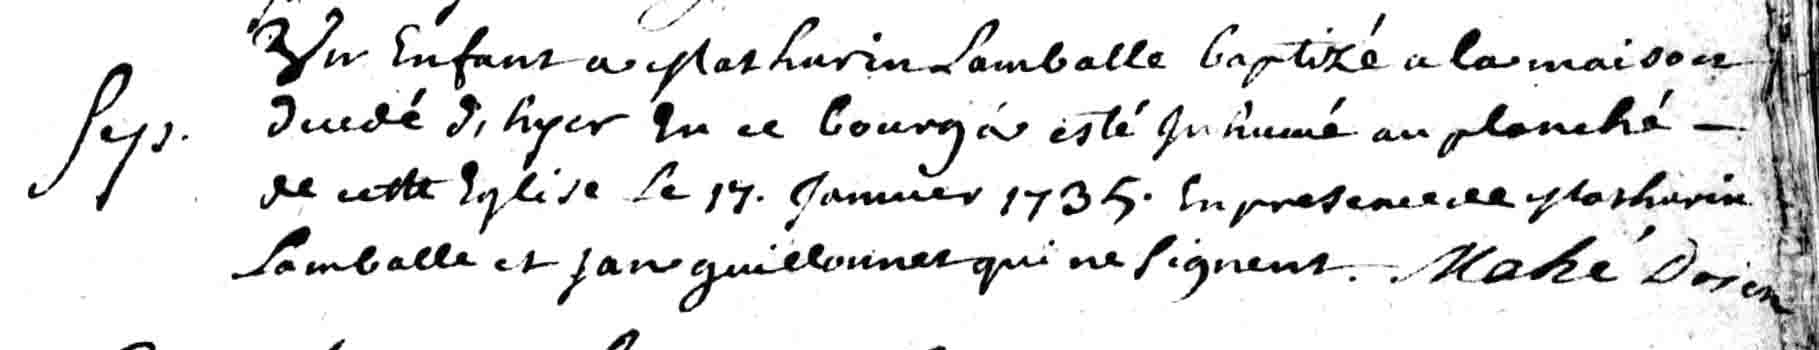 Un Enfant a Mathurin Lamballe baptizé a la maison
Sep. decedé d'hyer En ce bourg a esté Inhumé au planché -
de cette Eglise Le 17. Janvier 1735. En presence de Mathurin
Lamballe et Jan guillonnet qui ne signent. Mahé Doien